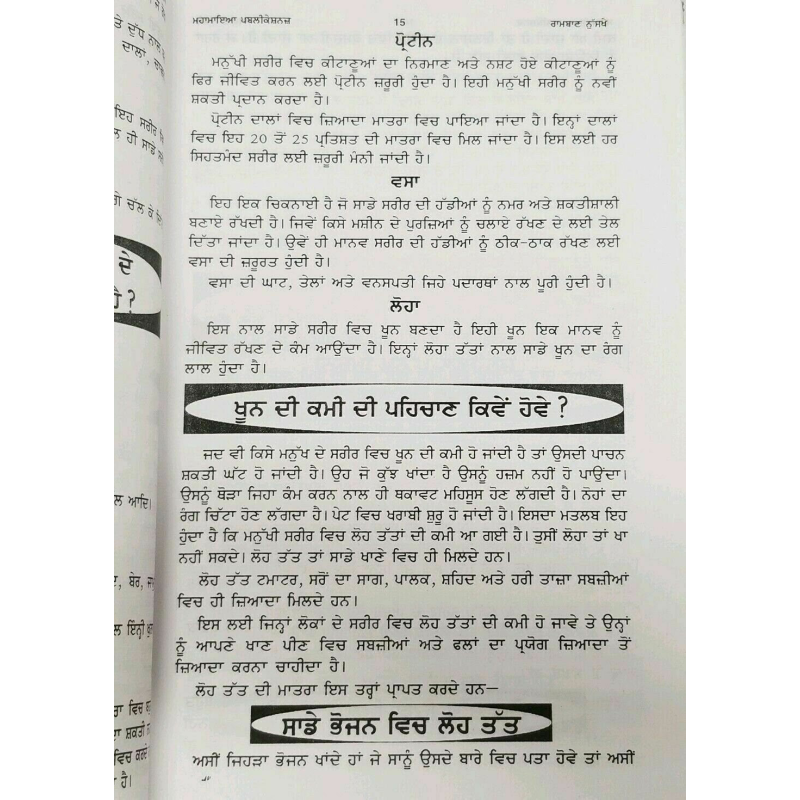 ਤੇ ਦੁੱਧ ਨਾਲ
ਦਾਲਾਂ,
ਇਹ ਸਰੀਰ
ਹੀ ਸਾਡੇ
ਚੱਲ ਕੇ
ਦੇ
ਹੈ ?
ਲ ਆਦਿ।
ਬੇਰ,
ਲ ਇੰਨ੍ਹੀ
ਰਾ ਵਿਚ
ਦਾ ਸ਼ਕਤੀ
ਵਿਚ ਕਰਦੇ
ਹੈ।
ਮਹਾਮਾਇਆ ਪਬਲੀਕੇਸ਼ਨਜ਼ 15 ਰਾਮਬਾਣ ਨੁੱਸਖੇ
ਪ੍ਰੋਟੀਨ
ਮਨੁੱਖੀ ਸਰੀਰ ਵਿਚ ਕੀਟਾਣੂਆਂ ਦਾ ਨਿਰਮਾਣ ਅਤੇ ਨਸ਼ਟ ਹੋਏ ਕੀਟਾਣੂਆਂ ਨੂੰ
ਫਿਰ ਜੀਵਿਤ ਕਰਨ ਲਈ ਪ੍ਰੋਟੀਨ ਜ਼ਰੂਰੀ ਹੁੰਦਾ ਹੈ। ਇਹੀ ਮਨੁੱਖੀ ਸਰੀਰ ਨੂੰ ਨਵੀਂ
ਸ਼ਕਤੀ ਪ੍ਰਦਾਨ ਕਰਦਾ ਹੈ।
ਪ੍ਰੋਟੀਨ ਦਾਲਾਂ ਵਿਚ ਜ਼ਿਆਦਾ ਮਾਤਰਾ ਵਿਚ ਪਾਇਆ ਜਾਂਦਾ ਹੈ। ਇਨ੍ਹਾਂ ਦਾਲਾਂ
ਵਿਚ ਇਹ 20 ਤੋਂ 25 ਪ੍ਰਤਿਸ਼ਤ ਦੀ ਮਾਤਰਾ ਵਿਚ ਮਿਲ ਜਾਂਦਾ ਹੈ। ਇਸ ਲਈ ਹਰ
ਸਿਹਤਮੰਦ ਸਰੀਰ ਲਈ ਜ਼ਰੂਰੀ ਮੰਨੀ ਜਾਂਦੀ ਹੈ।
ਵਸਾ
ਇਹ ਇਕ ਚਿਕਨਾਈ ਹੈ ਜੋ ਸਾਡੇ ਸਰੀਰ ਦੀ ਹੱਡੀਆਂ ਨੂੰ ਨਮਰ ਅਤੇ ਸ਼ਕਤੀਸ਼ਾਲੀ
ਬਣਾਏ ਰੱਖਦੀ ਹੈ। ਜਿਵੇਂ ਕਿਸੇ ਮਸ਼ੀਨ ਦੇ ਪੁਰਜ਼ਿਆਂ ਨੂੰ ਚਲਾਏ ਰੱਖਣ ਦੇ ਲਈ ਤੇਲ
ਦਿੱਤਾ ਜਾਂਦਾ ਹੈ। ਉਵੇਂ ਹੀ ਮਾਨਵ ਸਰੀਰ ਦੀ ਹੱਡੀਆਂ ਨੂੰ ਠੀਕ-ਠਾਕ ਰੱਖਣ ਲਈ
ਵਸਾ ਦੀ ਜ਼ਰੂਰਤ ਹੁੰਦੀ ਹੈ।
ਵਸਾ ਦੀ ਘਾਟ, ਤੇਲਾਂ ਅਤੇ ਵਨਸਪਤੀ ਜਿਹੇ ਪਦਾਰਥਾਂ ਨਾਲ ਪੂਰੀ ਹੁੰਦੀ ਹੈ।
ਲੋਹਾ
ਇਸ ਨਾਲ ਸਾਡੇ ਸਰੀਰ ਵਿਚ ਖੂਨ ਬਣਦਾ ਹੈ ਇਹੀ ਖੂਨ ਇਕ ਮਾਨਵ ਨੂੰ
ਜੀਵਿਤ ਰੱਖਣ ਦੇ ਕੰਮ ਆਉਂਦਾ ਹੈ। ਇਨ੍ਹਾਂ ਲੋਹਾ ਤੱਤਾਂ ਨਾਲ ਸਾਡੇ ਖੂਨ ਦਾ ਰੰਗ
ਲਾਲ ਹੁੰਦਾ ਹੈ।
ਖੂਨ ਦੀ ਕਮੀ ਦੀ ਪਹਿਚਾਣ ਕਿਵੇਂ ਹੋਵੇ ?
ਜਦ ਵੀ ਕਿਸੇ ਮਨੁੱਖ ਦੇ ਸਰੀਰ ਵਿਚ ਖੂਨ ਦੀ ਕਮੀ ਹੋ ਜਾਂਦੀ ਹੈ ਤਾਂ ਉਸਦੀ ਪਾਚਨ
ਸ਼ਕਤੀ ਘੱਟ ਹੋ ਜਾਂਦੀ ਹੈ। ਉਹ ਜੋ ਕੁੱਝ ਖਾਂਦਾ ਹੈ ਉਸਨੂੰ ਹਜ਼ਮ ਨਹੀਂ ਹੋ ਪਾਉਂਦਾ।
ਉਸਨੂੰ ਥੋੜਾ ਜਿਹਾ ਕੰਮ ਕਰਨ ਨਾਲ ਹੀ ਥਕਾਵਟ ਮਹਿਸੂਸ ਹੋਣ ਲੱਗਦੀ ਹੈ। ਨੋਹਾਂ ਦਾ
ਰੰਗ ਚਿੱਟਾ ਹੋਣ ਲੱਗਦਾ ਹੈ। ਪੇਟ ਵਿਚ ਖਰਾਬੀ ਸ਼ੁਰੂ ਹੋ ਜਾਂਦੀ ਹੈ। ਇਸਦਾ ਮਤਲਬ ਇਹ
ਹੁੰਦਾ ਹੈ ਕਿ ਮਨੁੱਖੀ ਸਰੀਰ ਵਿਚ ਲੋਹ ਤੱਤਾਂ ਦੀ ਕਮੀ ਆ ਗਈ ਹੈ। ਤੁਸੀਂ ਲੋਹਾ ਤਾਂ ਖਾ
ਨਹੀਂ ਸਕਦੇ। ਲੋਹ ਤੱਤ ਤਾਂ ਸਾਡੇ ਖਾਣੇ ਵਿਚ ਹੀ ਮਿਲਦੇ ਹਨ।
ਲੋਹ ਤੱਤ ਟਮਾਟਰ, ਸਰੋਂ ਦਾ ਸਾਗ, ਪਾਲਕ, ਸ਼ਹਿਦ ਅਤੇ ਹਰੀ ਤਾਜ਼ਾ ਸਬਜ਼ੀਆਂ
ਵਿਚ ਹੀ ਜ਼ਿਆਦਾ ਮਿਲਦੇ ਹਨ।
ਇਸ ਲਈ ਜਿਨ੍ਹਾਂ ਲੋਕਾਂ ਦੇ ਸਰੀਰ ਵਿਚ ਲੋਹ ਤੱਤਾਂ ਦੀ ਕਮੀ ਹੋ ਜਾਵੇ ਤੇ ਉਨ੍ਹਾਂ
ਨੂੰ ਆਪਣੇ ਖਾਣ ਪੀਣ ਵਿਚ ਸਬਜ਼ੀਆਂ ਅਤੇ ਫਲਾਂ ਦਾ ਪ੍ਰਯੋਗ ਜ਼ਿਆਦਾ ਤੋਂ
ਜ਼ਿਆਦਾ ਕਰਨਾ ਚਾਹੀਦਾ ਹੈ।
ਲੋਹ ਤੱਤ ਦੀ ਮਾਤਰਾ ਇਸ ਤਰ੍ਹਾਂ ਪ੍ਰਾਪਤ ਕਰਦੇ ਹਨ—
ਸਾਡੇ ਭੋਜਨ ਵਿਚ ਲੋਹ ਤੱਤ
ਅਸੀਂ ਜਿਹੜਾ ਭੋਜਨ ਖਾਂਦੇ ਹਾਂ ਜੇ ਸਾਨੂੰ ਉਸਦੇ ਬਾਰੇ ਵਿਚ ਪਤਾ ਹੋਵੇ ਤਾਂ ਅਸੀਂ